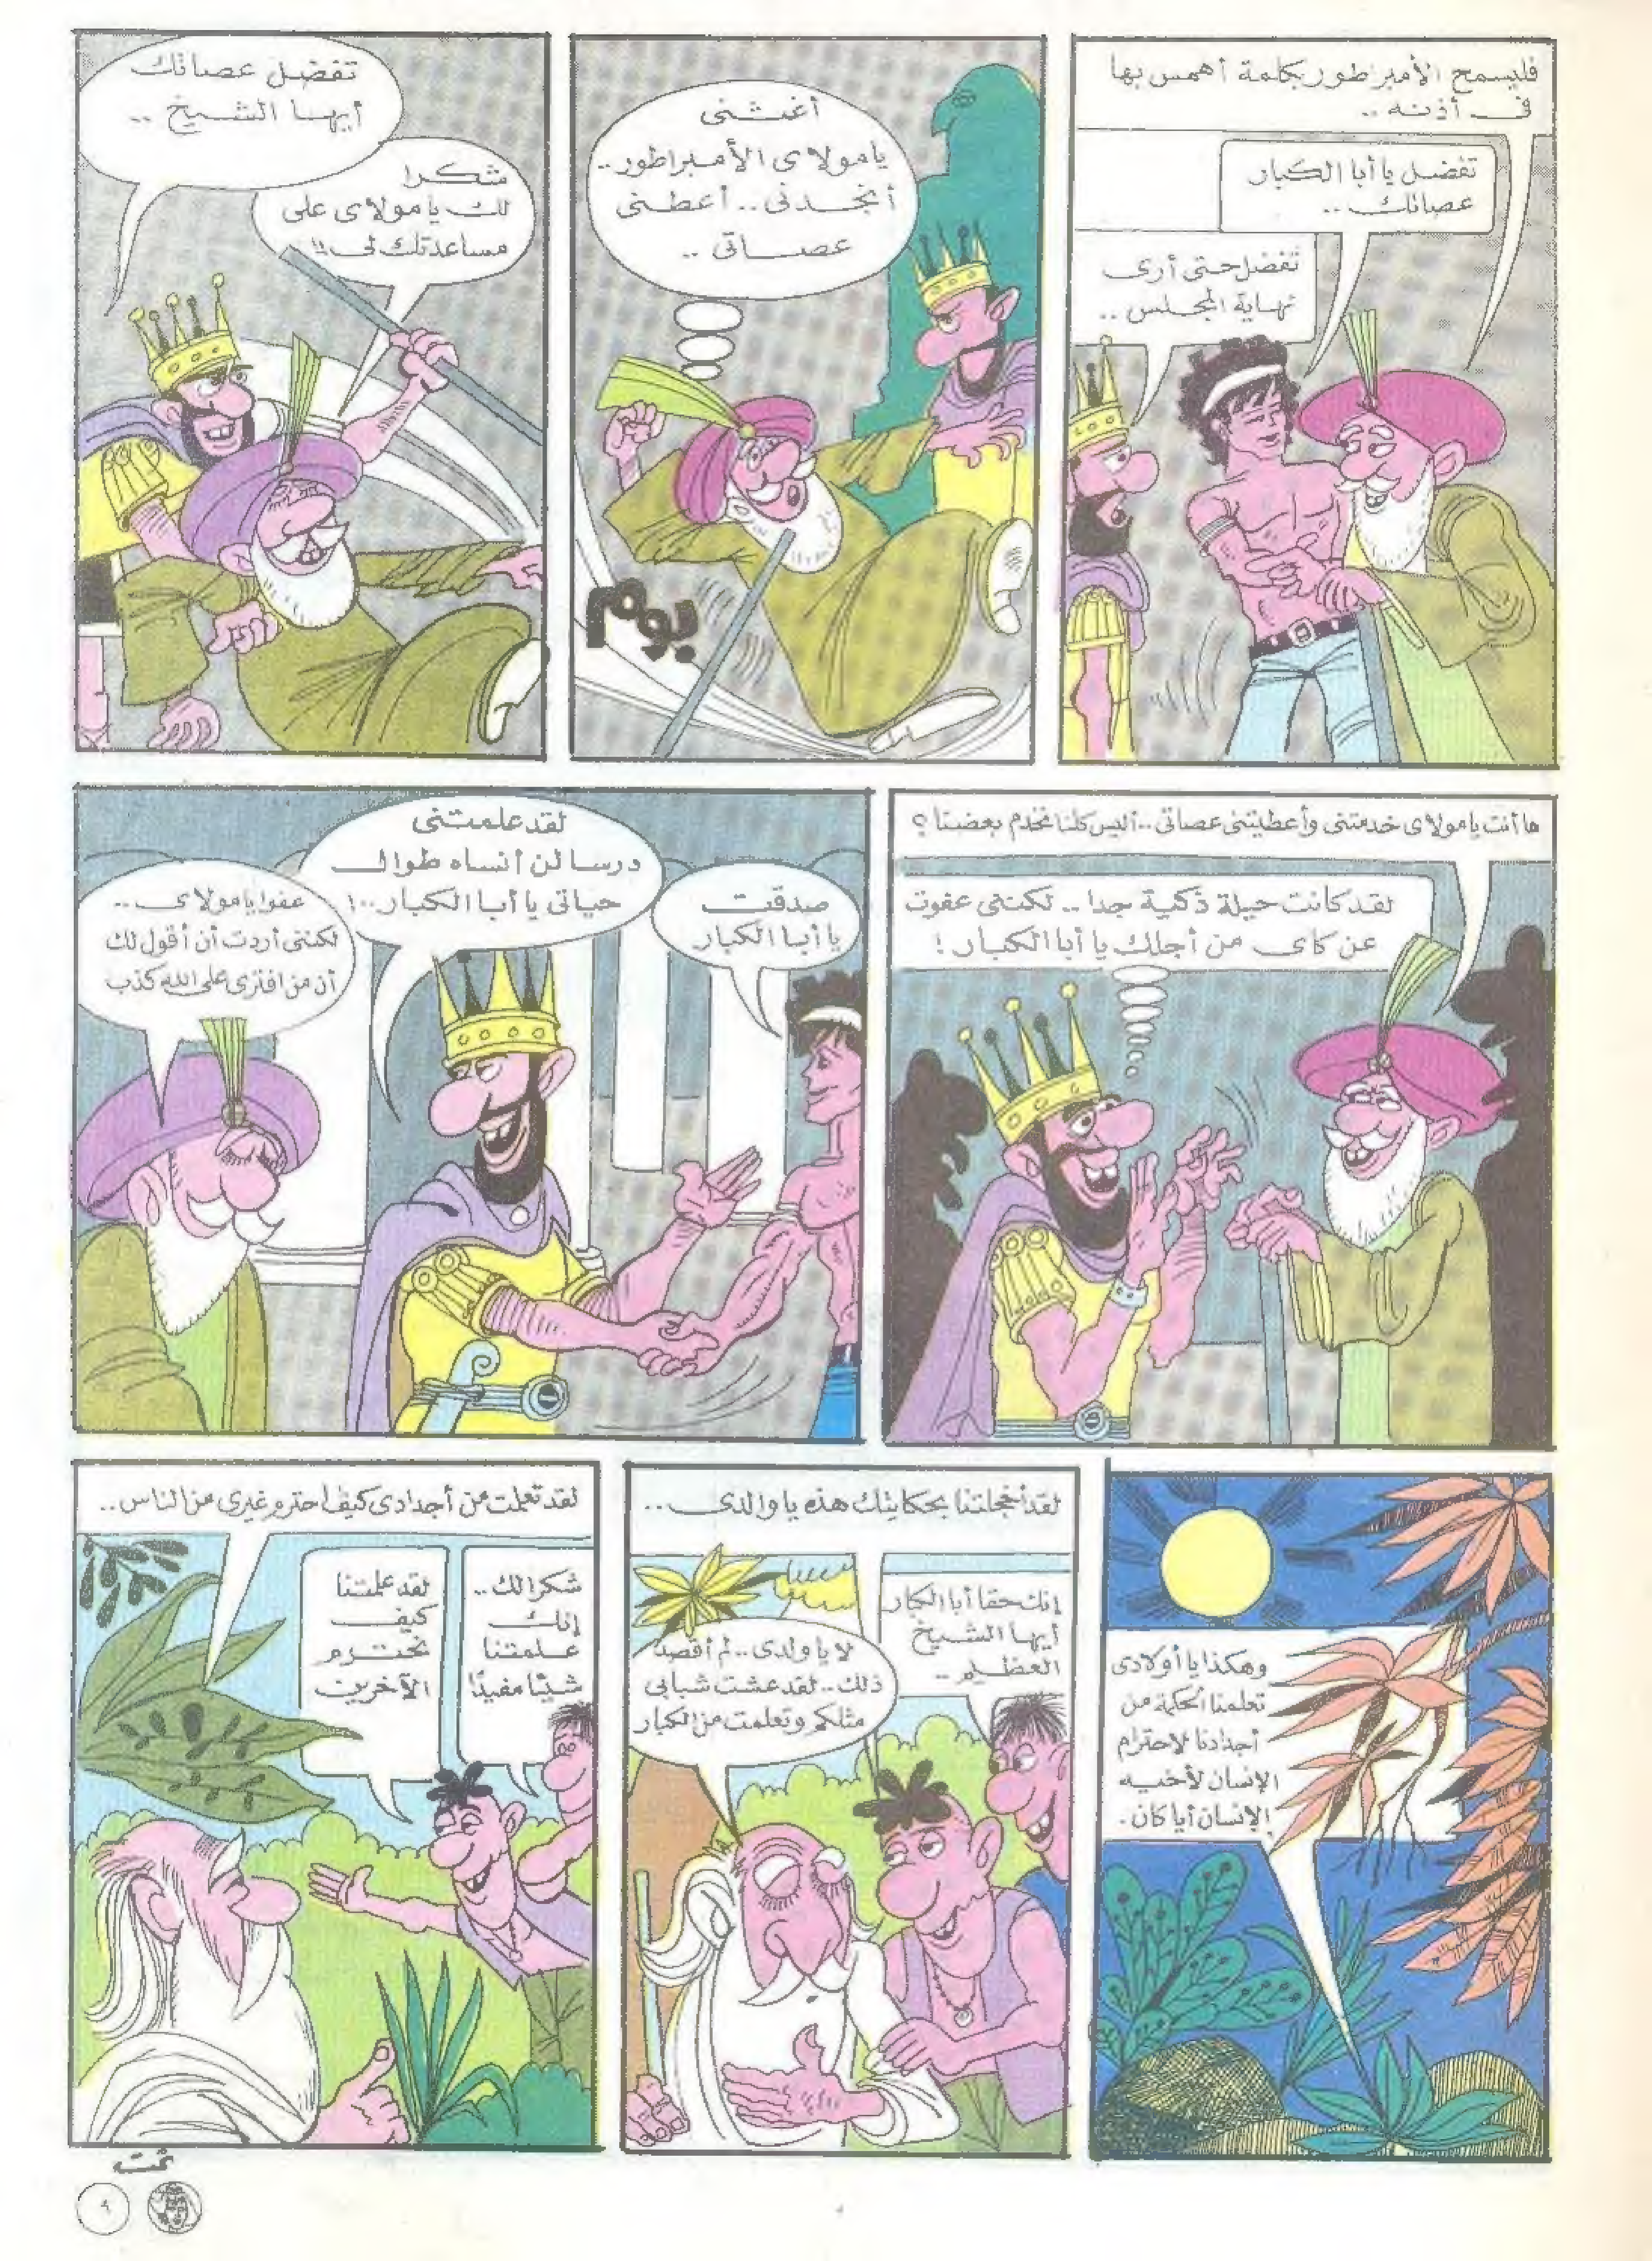 فليسمح الأمبراطور بكلمة أهمس بها
فى أذنه ..
تفضل يا أبا الكبار
عصاتك ..
تفضل حتى أرى
نهاية المجلس ..
أغثنى
يا مولاى الأمبراطور..
أنجدنى .. أعطنى
عصاتى ..
بوم
تفضل عصاتك
أيها الشيخ ..
شكرا
لك يا مولاى على
مساعدتك لى !!
ها أنت يا مولاى خدمتنى وأعطيتنى عصاتى .. أليس كلنا نخدم بعضنا ؟
لقد كانت حيلة ذكية جدا .. لكننى عفوت
عن كاى من أجلك يا أبا الكبار !
صدقت
يا أبا الكبار
لقد علمتنى
درسا لن أنساه طوال
حياتى يا أبا الكبار ..!
عفوا يا مولاى ..
لكننى أردت أن أقول لك
أن من افترى على الله كذب
وهكذا يا أولادى
تعلمنا الحكمة من
أجدادنا لاحترام
الإنسان لأخيه
الإنسان أيا كان .
لقد أخجلتنا بحكايتك هذه يا والدى ..
إنك حقا أبا الكبار
أيها الشيخ
العظيم ..
لا يا ولدى .. لم أقصد
ذلك .. لقد عشت شبابى
مثلكم وتعلمت من الكبار
لقد تعلمت من أجدادى كيف احترم غيرى من الناس ..
شكرا لك ..
إنك
علمتنا
شيئا مفيدًا
لقد علمتنا
كيف
نحترم
الآخرين
تمت
٩